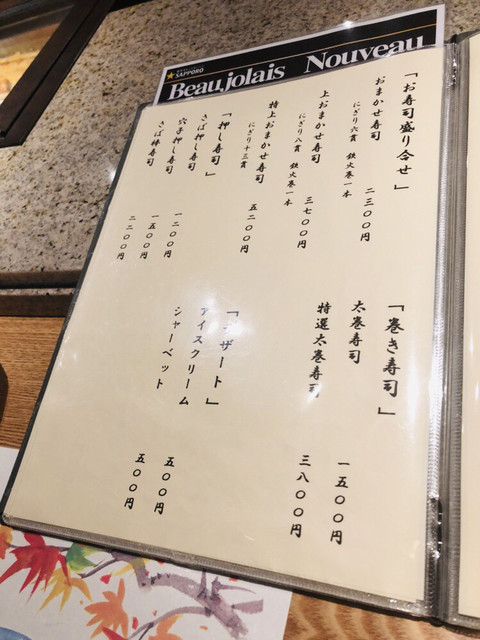 SAPPORO
Beaujolais Nouveau
「お寿司盛り合せ」
おまかせ寿司
にぎり六貫 鉄火巻一本
二三〇〇円
上おまかせ寿司
にぎり八貫 鉄火巻一本
三七〇〇円
特上おまかせ寿司
にぎり十三貫
五二〇〇円
「押し寿司」
さば押し寿司
一二〇〇円
穴子押し寿司
一五〇〇円
さば棒寿司
二二〇〇円
「巻き寿司」
太巻寿司
一五〇〇円
特選太巻寿司
三八〇〇円
「デザート」
アイスクリーム
五〇〇円
シャーベット
五〇〇円